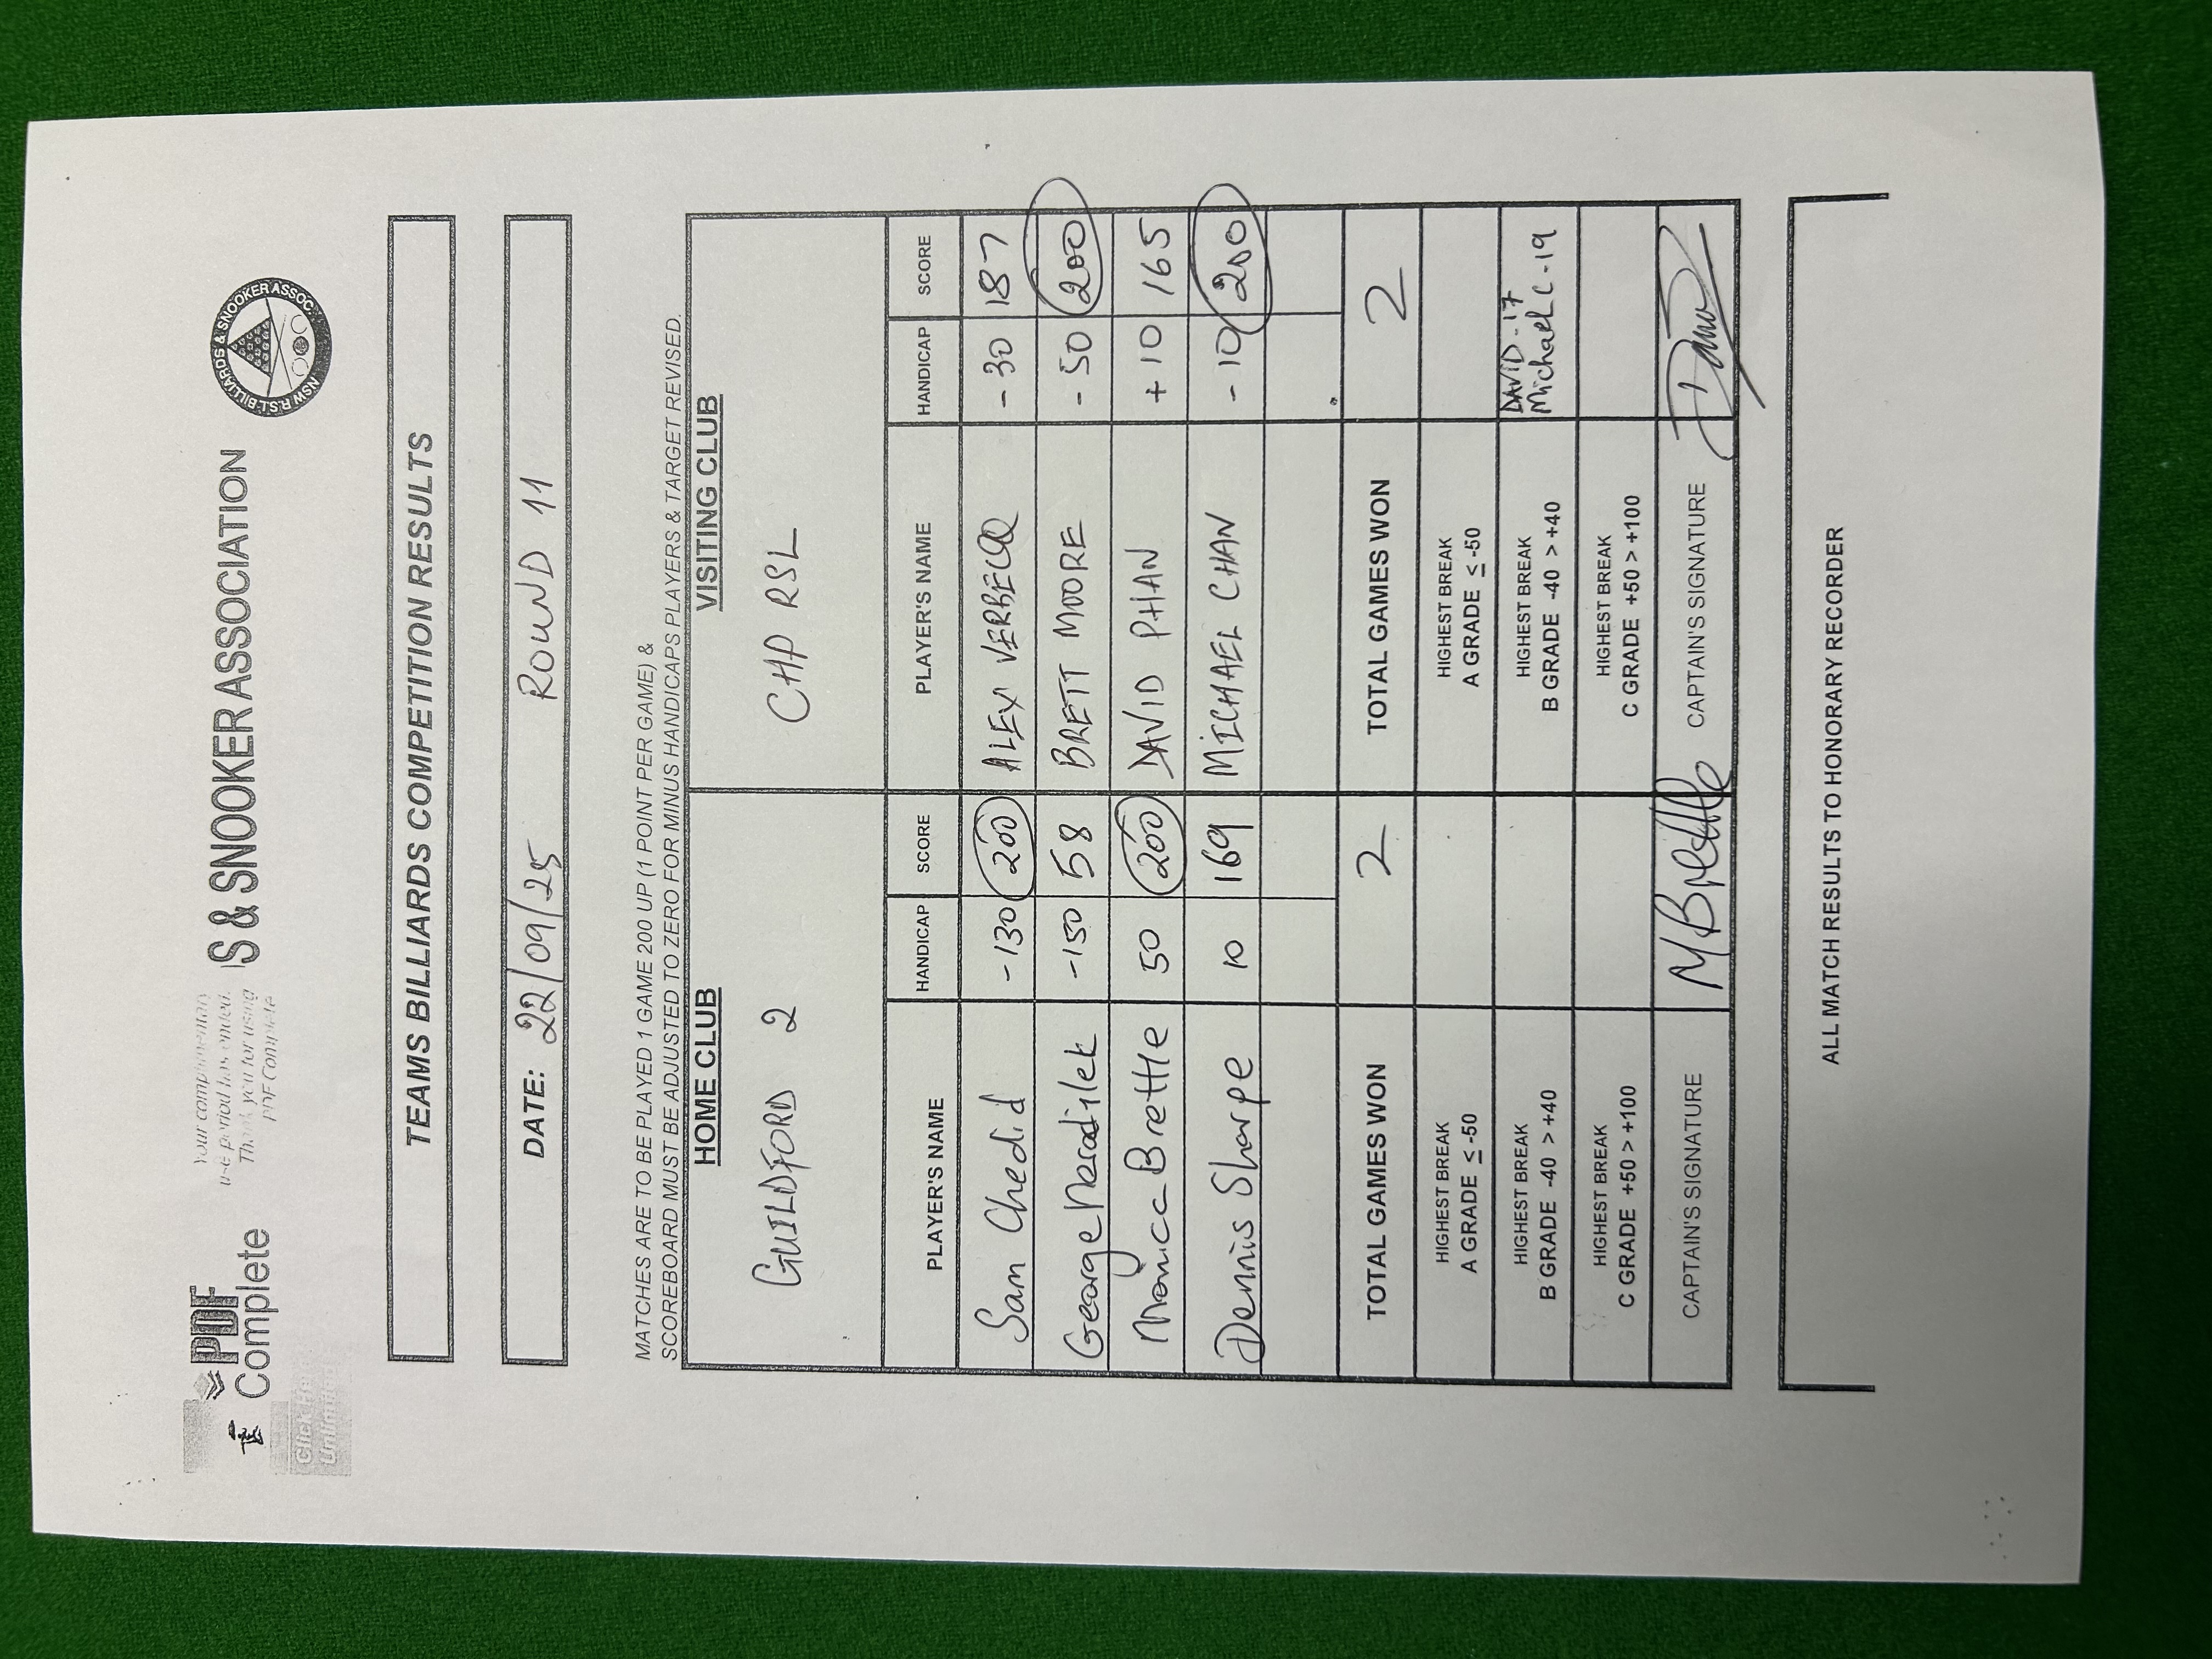 PDF
Complete
Your complimentary
use period has ended.
Thank you for using
PDF Complete
S & SNOOKER ASSOCIATION
NSW R.S.L. BILLIARDS & SNOOKER ASSOC.
TEAMS BILLIARDS COMPETITION RESULTS
DATE: 22/09/25 ROUND 11
MATCHES ARE TO BE PLAYED 1 GAME 200 UP (1 POINT PER GAME) &
SCOREBOARD MUST BE ADJUSTED TO ZERO FOR MINUS HANDICAPS PLAYERS & TARGET REVISED.
HOME CLUB VISITING CLUB
GUILDFORD 2 CHP RSL
PLAYER'S NAME HANDICAP SCORE PLAYER'S NAME HANDICAP SCORE
Sam Chedid -130 200 ALEX VERBECQ -30 187
George -150 58 BRETT MOORE -50 200
Monica Brette 50 200 DAVID PHAN +10 165
Dennis Sharpe 10 169 MICHAEL CHAN -10 200
TOTAL GAMES WON 2 TOTAL GAMES WON 2
HIGHEST BREAK HIGHEST BREAK
A GRADE ≤ -50 A GRADE ≤ -50
HIGHEST BREAK HIGHEST BREAK DAVID - 17
B GRADE -40 > +40 B GRADE -40 > +40 Michael C - 19
HIGHEST BREAK HIGHEST BREAK
C GRADE +50 > +100 C GRADE +50 > +100
CAPTAIN'S SIGNATURE M Brette CAPTAIN'S SIGNATURE
ALL MATCH RESULTS TO HONORARY RECORDER